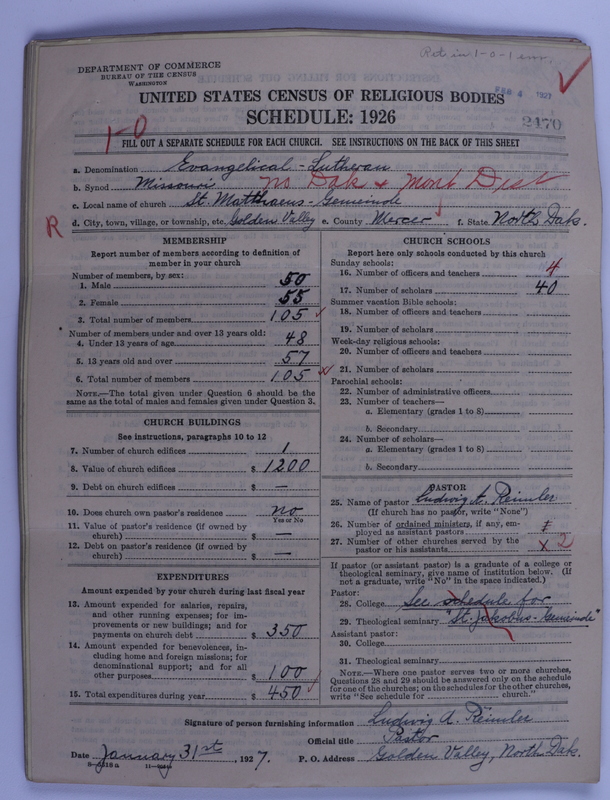 Ret in 1-0-1 env.
DEPARTMENT OF COMMERCE
BUREAU OF THE CENSUS
WASHINGTON
FEB 4 1927
UNITED STATES CENSUS OF RELIGIOUS BODIES
SCHEDULE: 1926
2470
1-0
FILL OUT A SEPARATE SCHEDULE FOR EACH CHURCH. SEE INSTRUCTIONS ON THE BACK OF THIS SHEET
a. Denomination Evangelical-Lutheran
b. Synod Missouri No Dak & Mont Dist
c. Local name of church St. Matthaeus-Gemeinde
R d. City, town, village, or township, etc. Golden Valley e. County Mercer f. State North Dak.
MEMBERSHIP
Report number of members according to definition of
member in your church
Number of members, by sex:
1. Male 50
2. Female 55
3. Total number of members 105
Number of members under and over 13 years old:
4. Under 13 years of age 48
5. 13 years old and over 57
6. Total number of members 105
NOTE.—The total given under Question 6 should be
the same as the total of males and females given under Question 3.
CHURCH BUILDINGS
See instructions, paragraphs 10 to 12
7. Number of church edifices 1
8. Value of church edifices $ 1200
9. Debt on church edifices $ —
10. Does church own pastor's residence no
Yes or No
11. Value of pastor's residence (if owned by
church) $ —
12. Debt on pastor's residence (if owned by
church) $ —
EXPENDITURES
Amount expended by your church during last fiscal year
13. Amount expended for salaries, repairs,
and other running expenses; for im-
provements or new buildings; and for
payments on church debt $ 350
14. Amount expended for benevolences, in-
cluding home and foreign missions; for
denominational support; and for all
other purposes $ 100
15. Total expenditures during year $ 450
CHURCH SCHOOLS
Report here only schools conducted by this church
Sunday schools:
16. Number of officers and teachers 4
17. Number of scholars 40
Summer vacation Bible schools:
18. Number of officers and teachers
19. Number of scholars
Week-day religious schools:
20. Number of officers and teachers
21. Number of scholars
Parochial schools:
22. Number of administrative officers
23. Number of teachers—
a. Elementary (grades 1 to 8)
b. Secondary
24. Number of scholars—
a. Elementary (grades 1 to 8)
b. Secondary
PASTOR
25. Name of pastor Ludwig A. Reimler
(If church has no pastor, write "None")
26. Number of ordained ministers, if any, em-
ployed as assistant pastors
27. Number of other churches served by the
pastor or his assistants x 2
If pastor (or assistant pastor) is a graduate of a college or
theological seminary, give name of institution below. (If
not a graduate, write "No" in the space indicated.)
Pastor:
28. College See schedule for
29. Theological seminary St. Jakobus-Gemeinde
Assistant pastor:
30. College
31. Theological seminary
NOTE.—Where one pastor serves two or more churches,
Questions 28 and 29 should be answered only on the schedule
for one of the churches; on the schedules for the other churches,
write "See schedule for church."
Signature of person furnishing information Ludwig A. Reimler
Official title Pastor
Date January 31st, 1927. P. O. Address Golden Valley, North Dak.